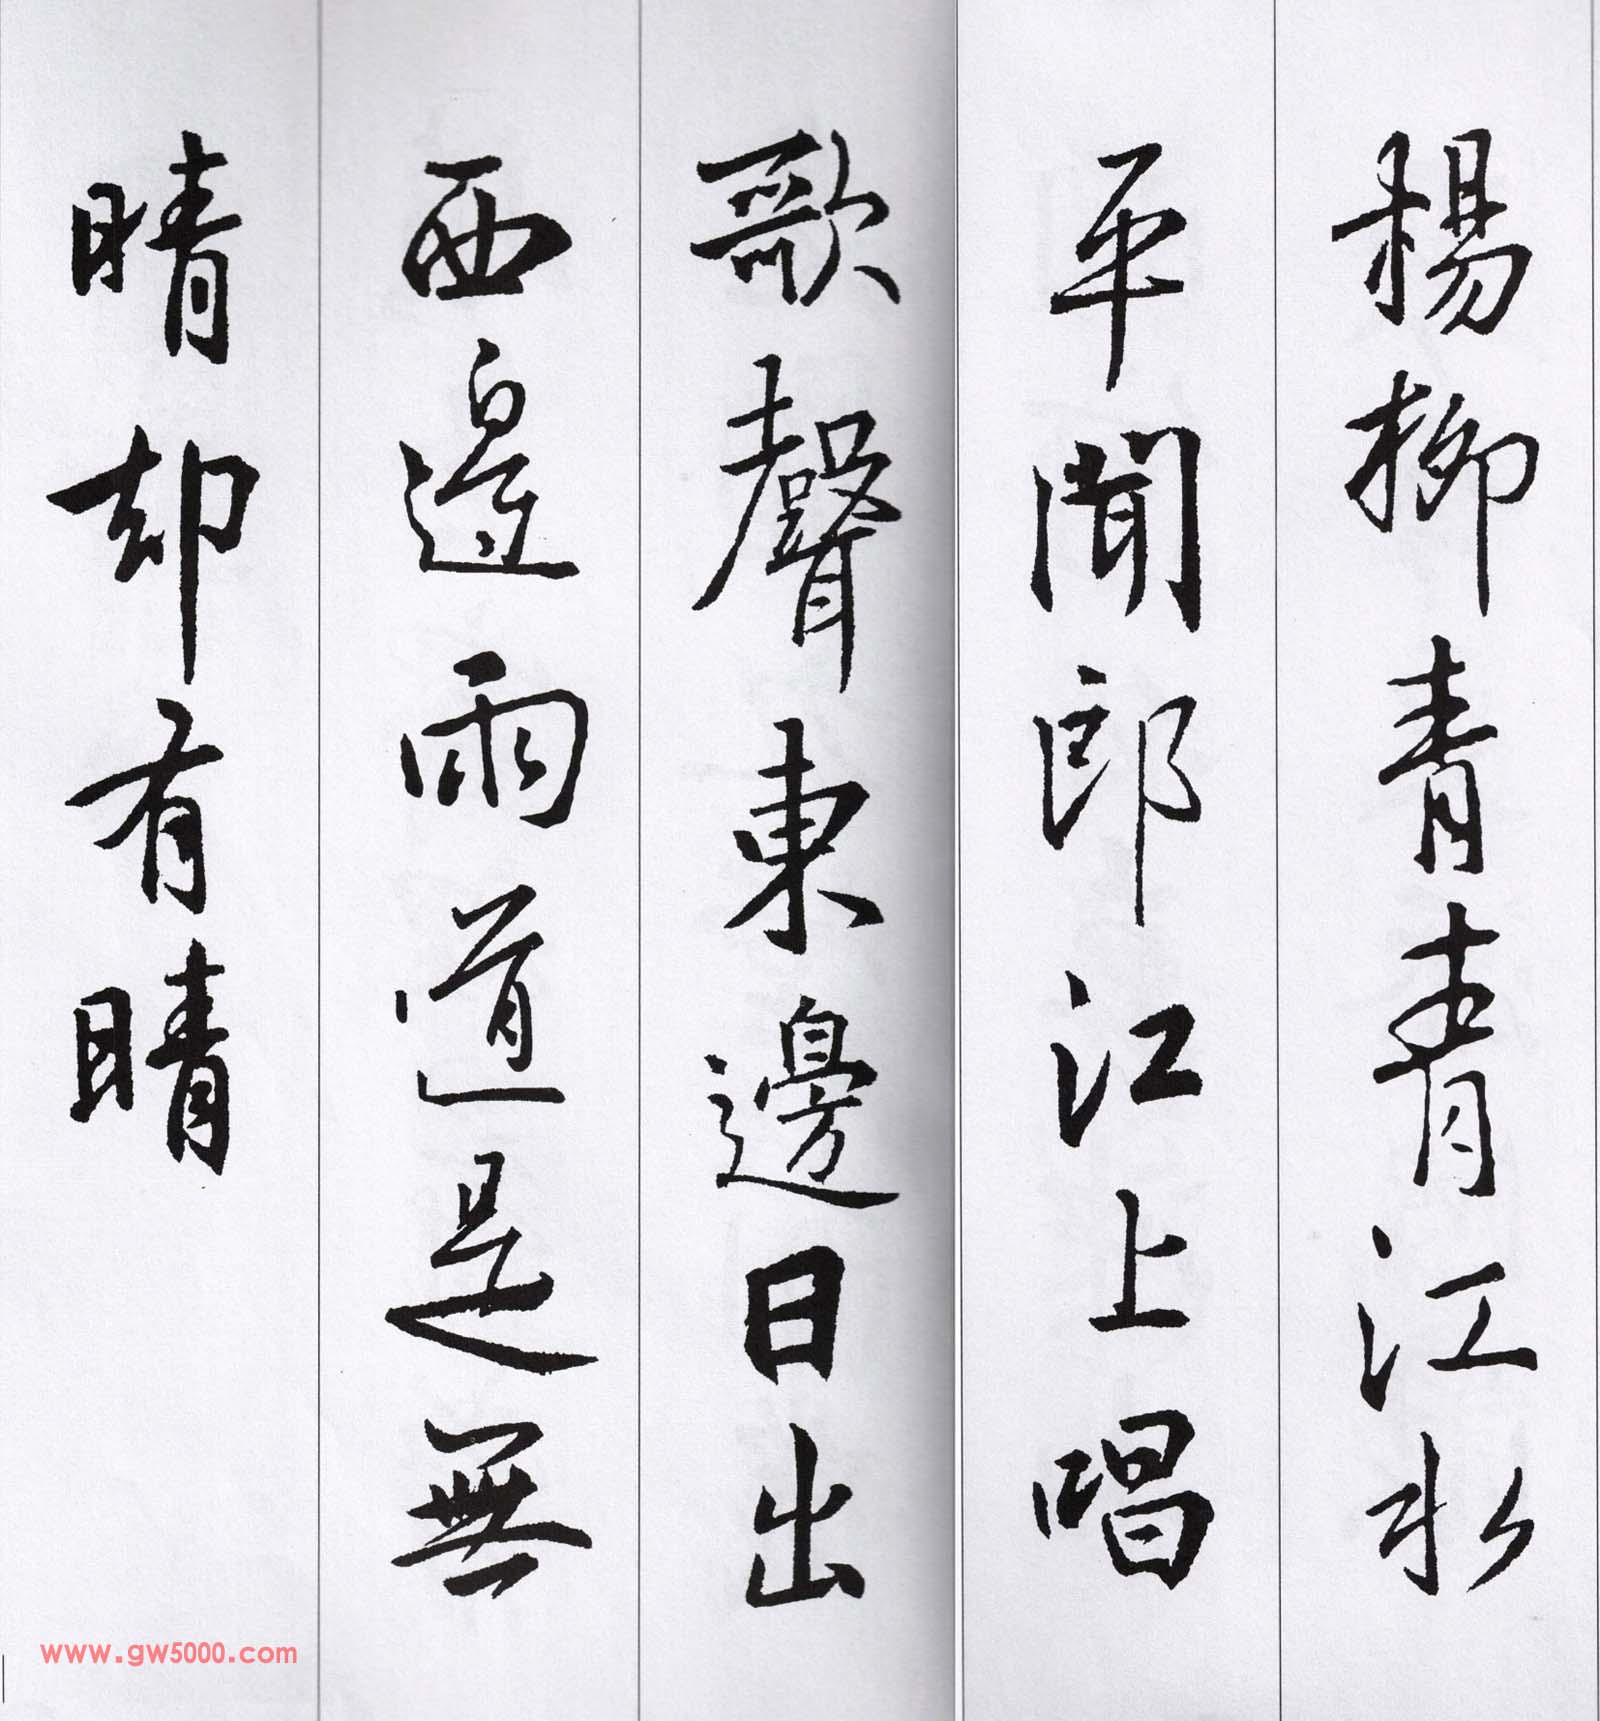 楊柳青青江水
平聞郎江上唱
歌聲東邊日出
西邊雨道是無
晴却有晴
www.gw5000.com